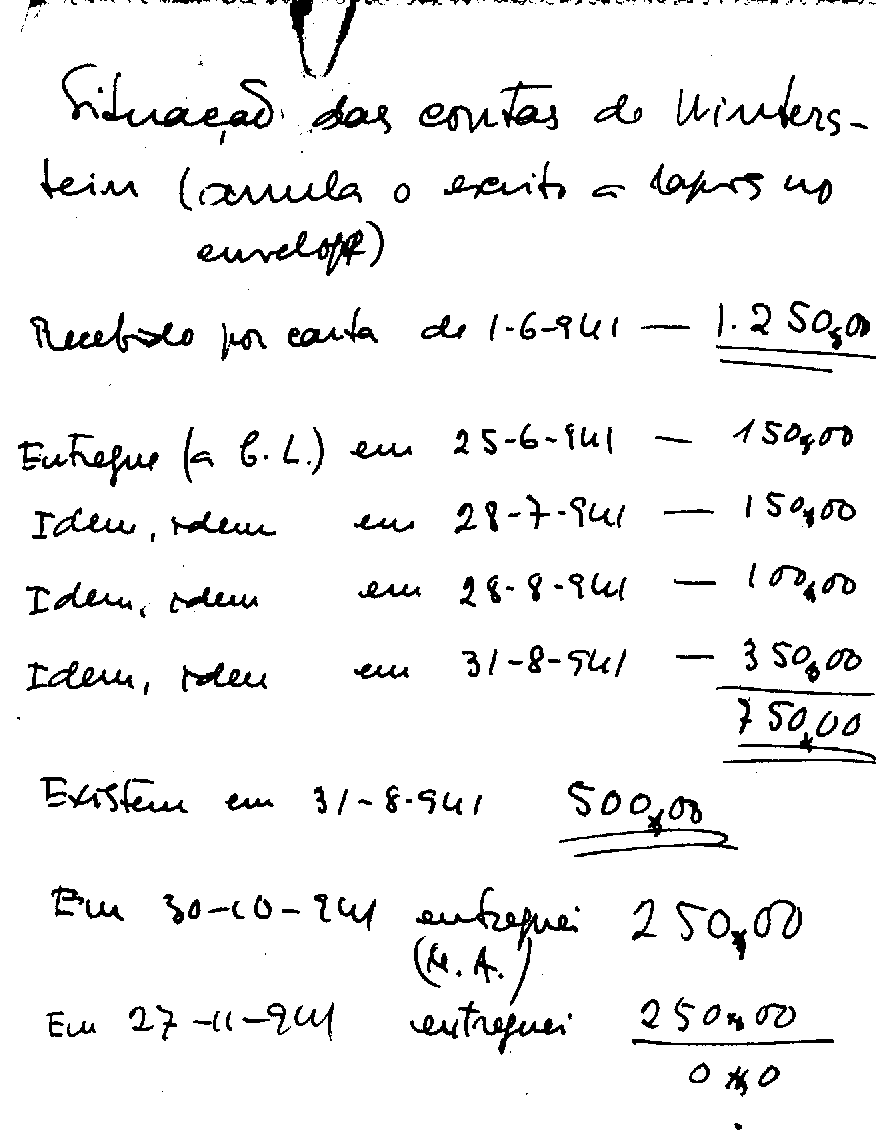 Situação das contas de Winters-
tein (anula o escrito a lapis no
envelope)
Recebido por conta de 1-6-941 — 1.250,00
Entregue (a C.L.) em 25-6-941 — 150,00
Idem, idem em 28-7-941 — 150,00
Idem, idem em 28-8-941 — 100,00
Idem, idem em 31-8-941 — 350,00
750,00
Existem em 31-8-941 500,00
Em 30-10-941 entreguei 250,00
(M.A.)
Em 27-11-941 entreguei 250,00
0,0